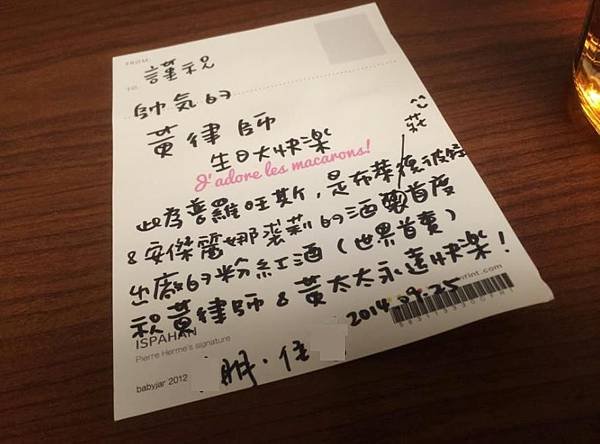 FROM:
謹祝
TO:
帥氣的
黃律師
生日大快樂
J'adore les macarons!
此為普羅旺斯，是布萊德彼特
&安傑麗娜裘莉的酒莊首度
出廠的粉紅酒（世界首賣）
祝黃律師&黃太太永遠快樂！
ISPAHAN
Pierre Herme's signature
2014.09.25
babyjar 2012